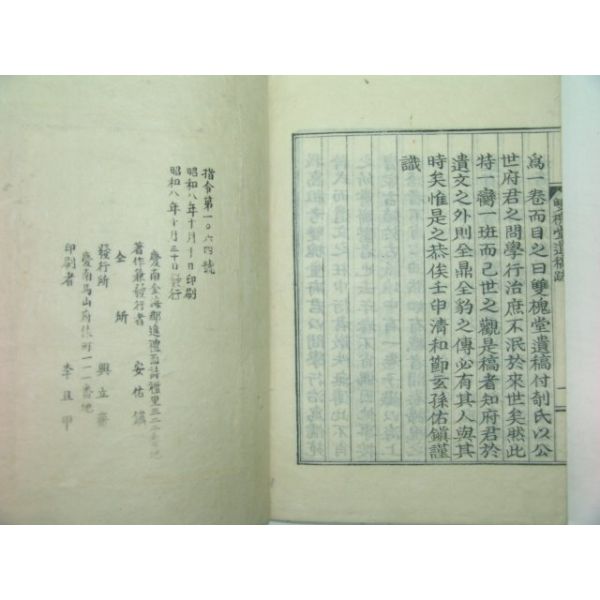 爲一卷而目之曰雙槐堂遺稿付剞氏以公
世府君之問學行治庶不泯於來世矣然此
特一臠一班而已世之觀是稿者知府君於
遺文之外則全鼎全豹之傳必有其人與其
時矣惟是之恭俟壬申淸和節玄孫佑鎭謹
識
雙槐堂遺稿跋
指令第一〇六四號
昭和八年十月十日印刷
昭和八年十月三十日發行
慶南金海郡進禮面詩禮里三二番地
著作兼發行者 安佑鎭
仝所
發行所 興立齋
慶南馬山府 町一一二番地
印刷者 李